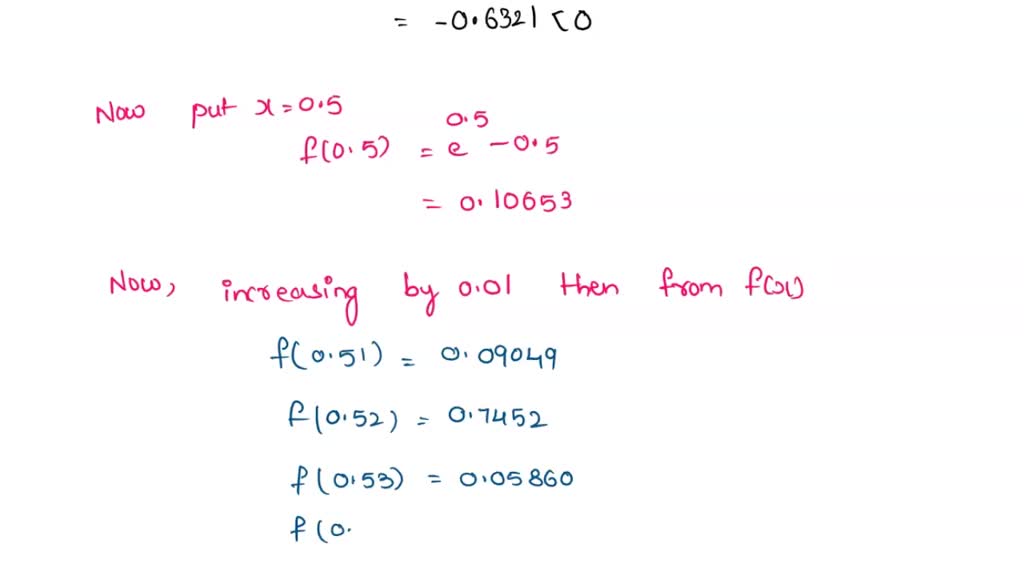 = -0.6321 < 0
Now put x = 0.5
f(0.5) = e^0.5 - 0.5
= 0.10653
Now, increasing by 0.01 then from f(x)
f(0.51) = 0.09049
f(0.52) = 0.7452
f(0.53) = 0.05860
f(0.